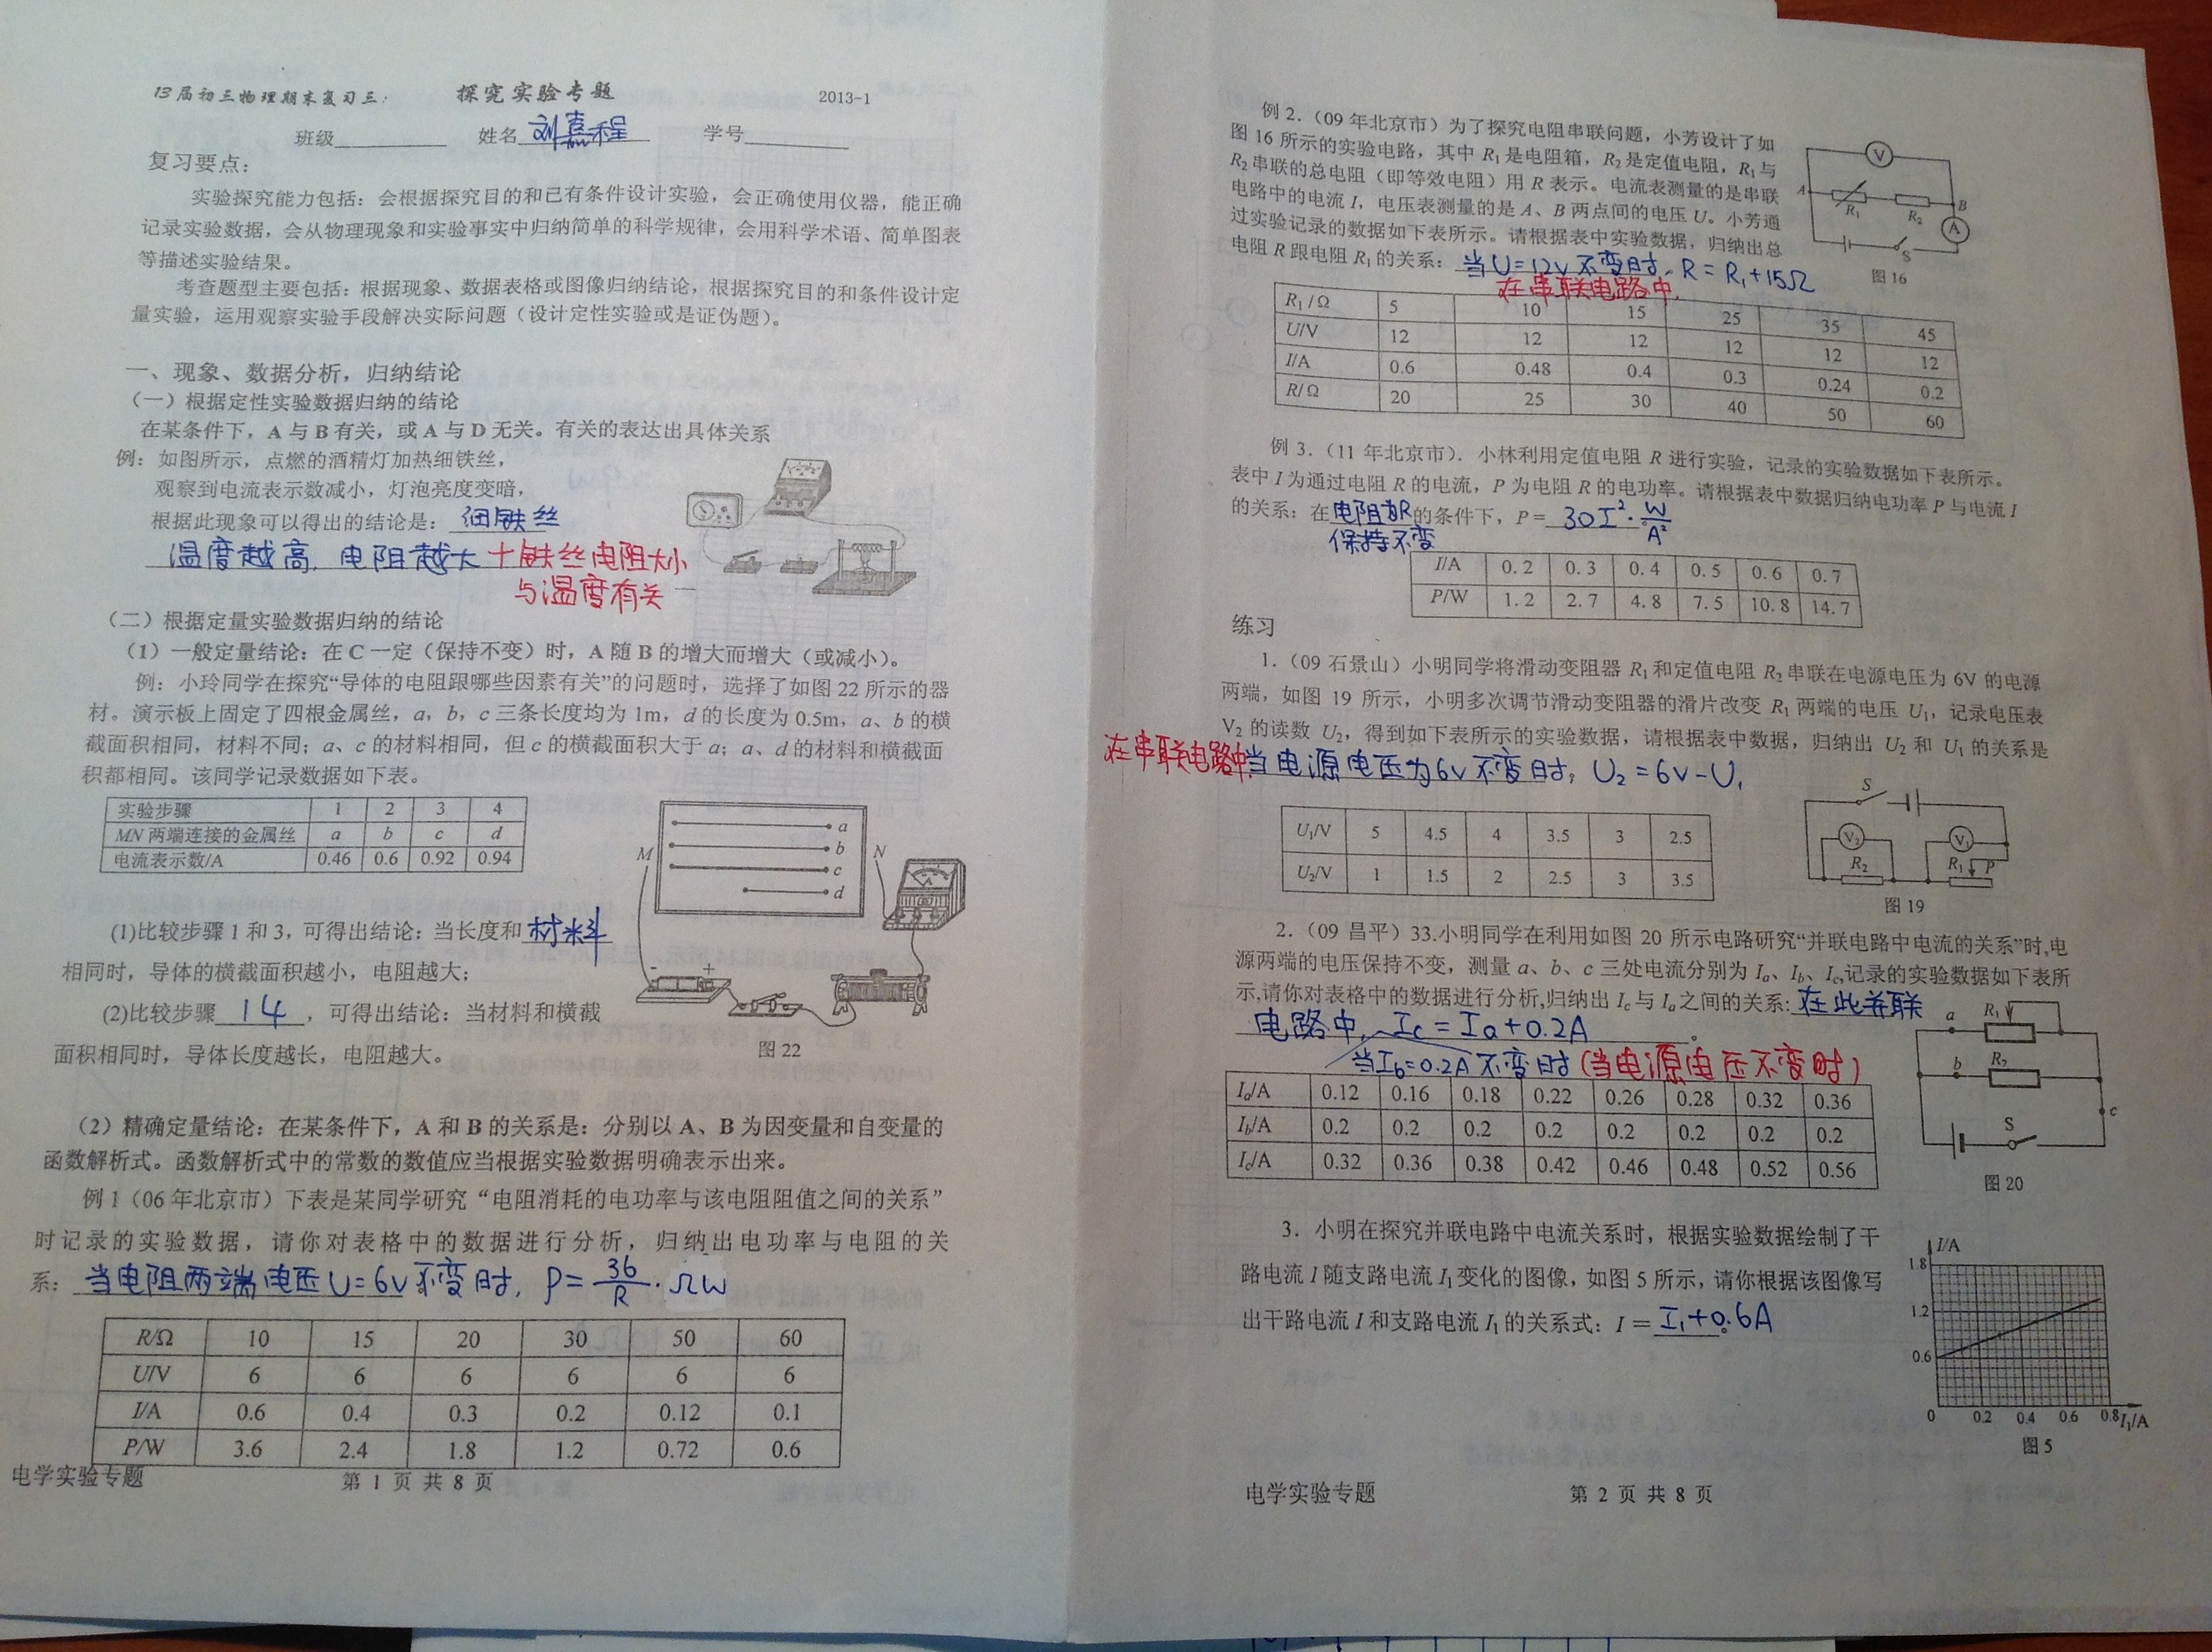 13届初三物理期末复习三： 探究实验专题 2013-1
班级________ 姓名 刘嘉程 学号________
复习要点：
实验探究能力包括：会根据探究目的和已有条件设计实验，会正确使用仪器，能正确
记录实验数据，会从物理现象和实验事实中归纳简单的科学规律，会用科学术语、简单图表
等描述实验结果。
考查题型主要包括：根据现象、数据表格或图像归纳结论，根据探究目的和条件设计定
量实验，运用观察实验手段解决实际问题（设计定性实验或是证伪题）。
一、现象、数据分析，归纳结论
（一）根据定性实验数据归纳的结论
在某条件下，A 与 B 有关，或 A 与 D 无关。有关的表达出具体关系
例：如图所示，点燃的酒精灯加热细铁丝，
观察到电流表示数减小，灯泡亮度变暗，
根据此现象可以得出的结论是：细铁丝
温度越高，电阻越大 +铁丝电阻大小
与温度有关
（二）根据定量实验数据归纳的结论
（1）一般定量结论：在 C 一定（保持不变）时，A 随 B 的增大而增大（或减小）。
例：小玲同学在探究“导体的电阻跟哪些因素有关”的问题时，选择了如图 22 所示的器
材。演示板上固定了四根金属丝，a，b，c 三条长度均为 1m，d 的长度为 0.5m，a、b 的横
截面积相同，材料不同；a、c 的材料相同，但 c 的横截面积大于 a；a、d 的材料和横截面
积都相同。该同学记录数据如下表。
实验步骤 1 2 3 4
MN 两端连接的金属丝 a b c d
电流表示数/A 0.46 0.6 0.92 0.94
M N a b c d
- +
图 22
(1)比较步骤 1 和 3，可得出结论：当长度和 材料
相同时，导体的横截面积越小，电阻越大；
(2)比较步骤 1 4 ，可得出结论：当材料和横截
面积相同时，导体长度越长，电阻越大。
（2）精确定量结论：在某条件下，A 和 B 的关系是：分别以 A、B 为因变量和自变量的
函数解析式。函数解析式中的常数的数值应当根据实验数据明确表示出来。
例 1（06 年北京市）下表是某同学研究“电阻消耗的电功率与该电阻阻值之间的关系”
时记录的实验数据，请你对表格中的数据进行分析，归纳出电功率与电阻的关
系：当电阻两端电压U=6V不变时，P=36/R·ΩW
R/Ω 10 15 20 30 50 60
U/V 6 6 6 6 6 6
I/A 0.6 0.4 0.3 0.2 0.12 0.1
P/W 3.6 2.4 1.8 1.2 0.72 0.6
电学实验专题 第 1 页 共 8 页
例 2．（09 年北京市）为了探究电阻串联问题，小芳设计了如
图 16 所示的实验电路，其中 R₁ 是电阻箱，R₂ 是定值电阻，R₁ 与
R₂ 串联的总电阻（即等效电阻）用 R 表示。电流表测量的是串联
电路中的电流 I，电压表测量的是 A、B 两点间的电压 U。小芳通
过实验记录的数据如下表所示。请根据表中实验数据，归纳出总
电阻 R 跟电阻 R₁ 的关系：当U=12V不变时，R=R₁+15Ω
在串联电路中，
V A R₁ R₂ B A S
图 16
R₁/Ω 5 10 15 25 35 45
U/V 12 12 12 12 12 12
I/A 0.6 0.48 0.4 0.3 0.24 0.2
R/Ω 20 25 30 40 50 60
例 3．（11 年北京市）．小林利用定值电阻 R 进行实验，记录的实验数据如下表所示。
表中 I 为通过电阻 R 的电流，P 为电阻 R 的电功率。请根据表中数据归纳电功率 P 与电流 I
的关系：在 电阻R 的条件下，P= 30I²·W/A²
保持不变
I/A 0.2 0.3 0.4 0.5 0.6 0.7
P/W 1.2 2.7 4.8 7.5 10.8 14.7
练习
1．（09 石景山）小明同学将滑动变阻器 R₁ 和定值电阻 R₂ 串联在电源电压为 6V 的电源
两端，如图 19 所示，小明多次调节滑动变阻器的滑片改变 R₁ 两端的电压 U₁，记录电压表
V₂ 的读数 U₂，得到如下表所示的实验数据，请根据表中数据，归纳出 U₂ 和 U₁ 的关系是
在串联电路中，当电源电压为6V不变时，U₂=6V-U₁
U₁/V 5 4.5 4 3.5 3 2.5
U₂/V 1 1.5 2 2.5 3 3.5
S V₂ V₁ R₂ R₁ P
图 19
2．（09 昌平）33.小明同学在利用如图 20 所示电路研究“并联电路中电流的关系”时,电
源两端的电压保持不变，测量 a、b、c 三处电流分别为 Iₐ、I_b、I_c,记录的实验数据如下表所
示,请你对表格中的数据进行分析,归纳出 I_c 与 Iₐ 之间的关系:在此并联
电路中，I_c=Iₐ+0.2A 。
当I_b=0.2A不变时（当电源电压不变时）
Iₐ/A 0.12 0.16 0.18 0.22 0.26 0.28 0.32 0.36
I_b/A 0.2 0.2 0.2 0.2 0.2 0.2 0.2 0.2
I_c/A 0.32 0.36 0.38 0.42 0.46 0.48 0.52 0.56
a R₁ b R₂ c S
图 20
3．小明在探究并联电路中电流关系时，根据实验数据绘制了干
路电流 I 随支路电流 I₁ 变化的图像，如图 5 所示，请你根据该图像写
出干路电流 I 和支路电流 I₁ 的关系式：I = I₁+0.6A 。
I/A
1.8
1.2
0.6
0 0.2 0.4 0.6 0.8 I₁/A
图 5
电学实验专题 第 2 页 共 8 页